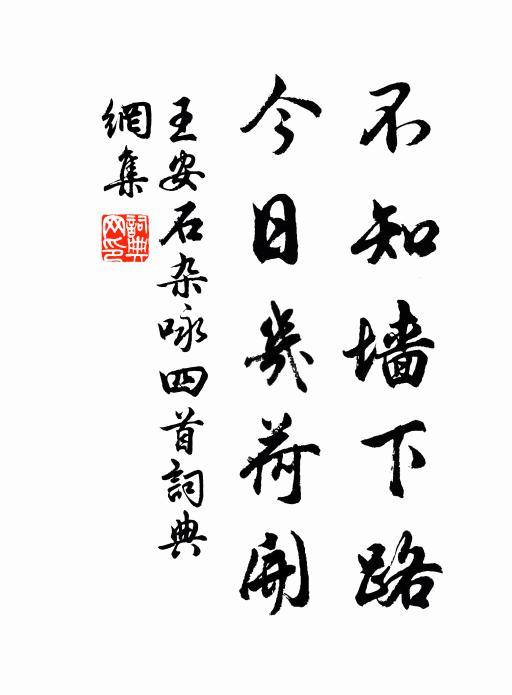 不知墙下路
今日幾荷開
王安石杂咏四首詞典
網集
詞典
网印